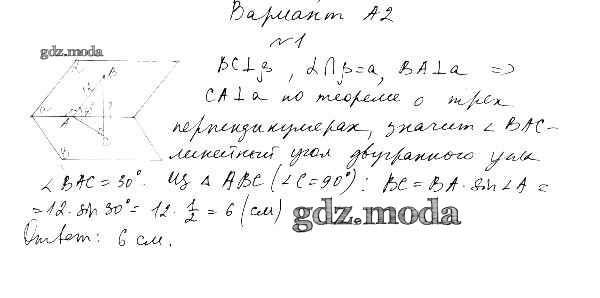 Вариант А2
№1
gdz.moda
BC⊥β, α∩β=a, BA⊥a ⇒
CA⊥a по теореме о трех
перпендикулярах, значит ∠BAC-
линейный угол двугранного угла
∠BAC=30°. Из △ABC (∠C=90°): BC=BA·sin∠A=
=12·sin 30°=12·1/2=6(см)
gdz.moda
Ответ: 6 см.
B
A